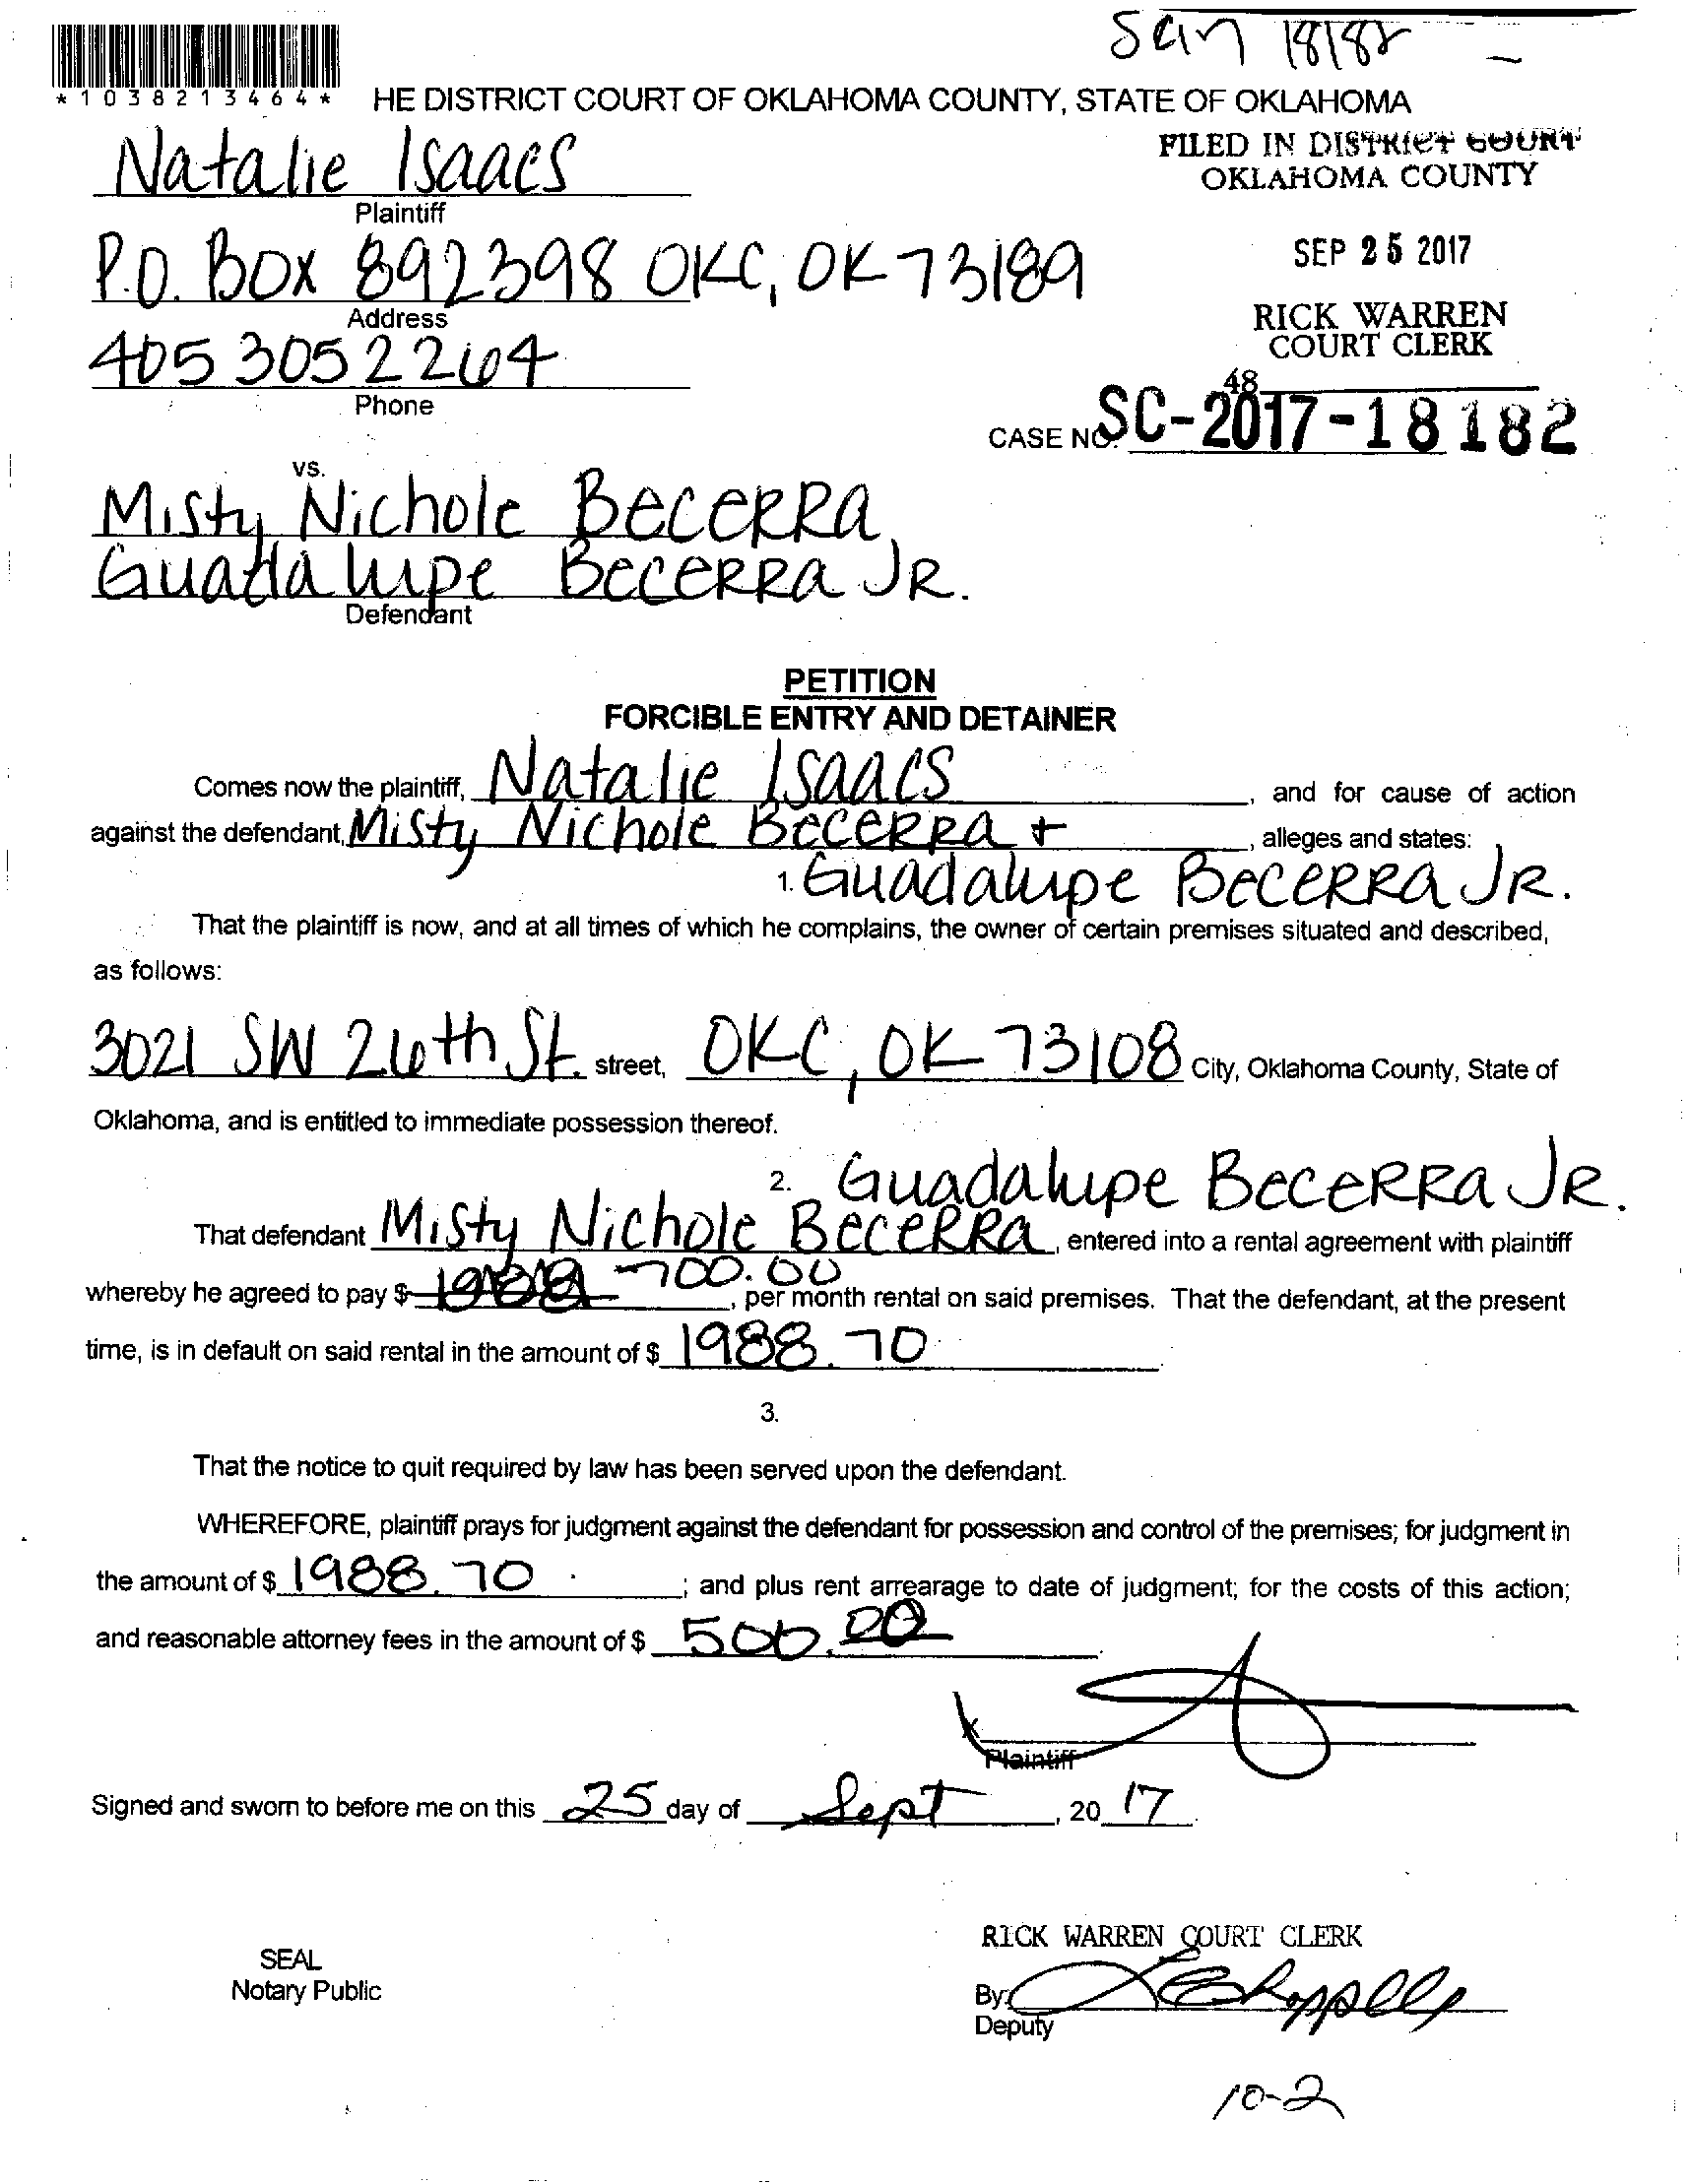 *1038213464*
HE DISTRICT COURT OF OKLAHOMA COUNTY, STATE OF OKLAHOMA
Natalie Isaacs
Plaintiff
FILED IN DISTRICT COURT
OKLAHOMA COUNTY
P.O. Box 892398 OKC, OK 73189
Address
SEP 25 2017
RICK WARREN
COURT CLERK
405 305 2264
Phone
48
CASE NO. SC-2017-18182
vs.
Misty Nichole Becerra
Guadalupe Becerra JR.
Defendant
PETITION
FORCIBLE ENTRY AND DETAINER
Comes now the plaintiff, Natalie Isaacs, and for cause of action
against the defendant, Misty Nichole Becerra +, alleges and states:
1. Guadalupe Becerra JR.
That the plaintiff is now, and at all times of which he complains, the owner of certain premises situated and described,
as follows:
3021 SW 26th St. street, OKC, OK 73108 City, Oklahoma County, State of
Oklahoma, and is entitled to immediate possession thereof.
2. Guadalupe Becerra JR.
That defendant Misty Nichole Becerra, entered into a rental agreement with plaintiff
whereby he agreed to pay $ 700.00, per month rental on said premises. That the defendant, at the present
time, is in default on said rental in the amount of $ 1988.70
3.
That the notice to quit required by law has been served upon the defendant.
WHEREFORE, plaintiff prays for judgment against the defendant for possession and control of the premises; for judgment in
the amount of $ 1988.70; and plus rent arrearage to date of judgment; for the costs of this action;
and reasonable attorney fees in the amount of $ 500.00.
X
Plaintiff
Signed and sworn to before me on this 25 day of Sept, 20 17.
RICK WARREN COURT CLERK
SEAL
Notary Public
By:
Deputy
10-2